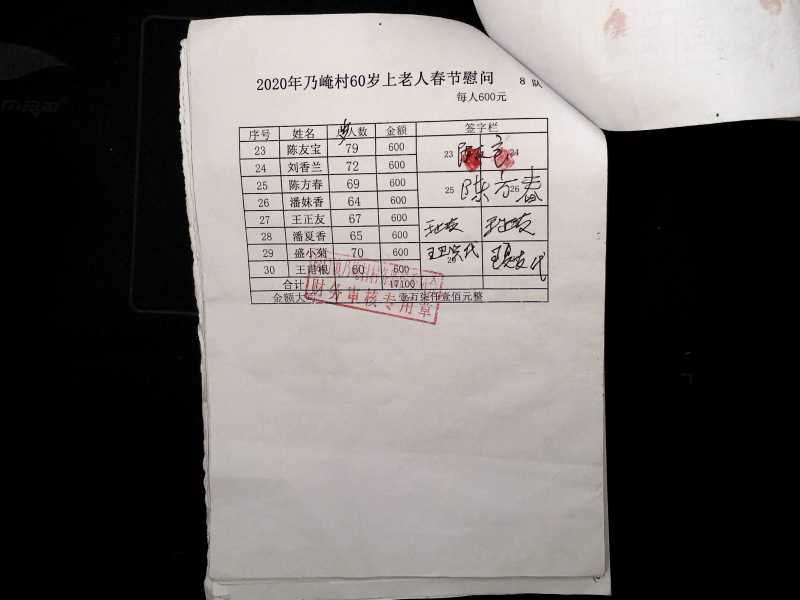 2020年乃崦村60岁上老人春节慰问 8 队
每人600元
序号 姓名 岁人数 金额 签字栏
23 陈友宝 79 600 23 24
24 刘香兰 72 600
25 陈方春 69 600 25 陈方春 26
26 潘妹香 64 600
27 王正友 67 600
28 潘夏香 65 600
29 盛小菊 70 600
30 王 根 60 600
合计 17100
金额大 壹万柒仟壹佰元整
财务审核专用章